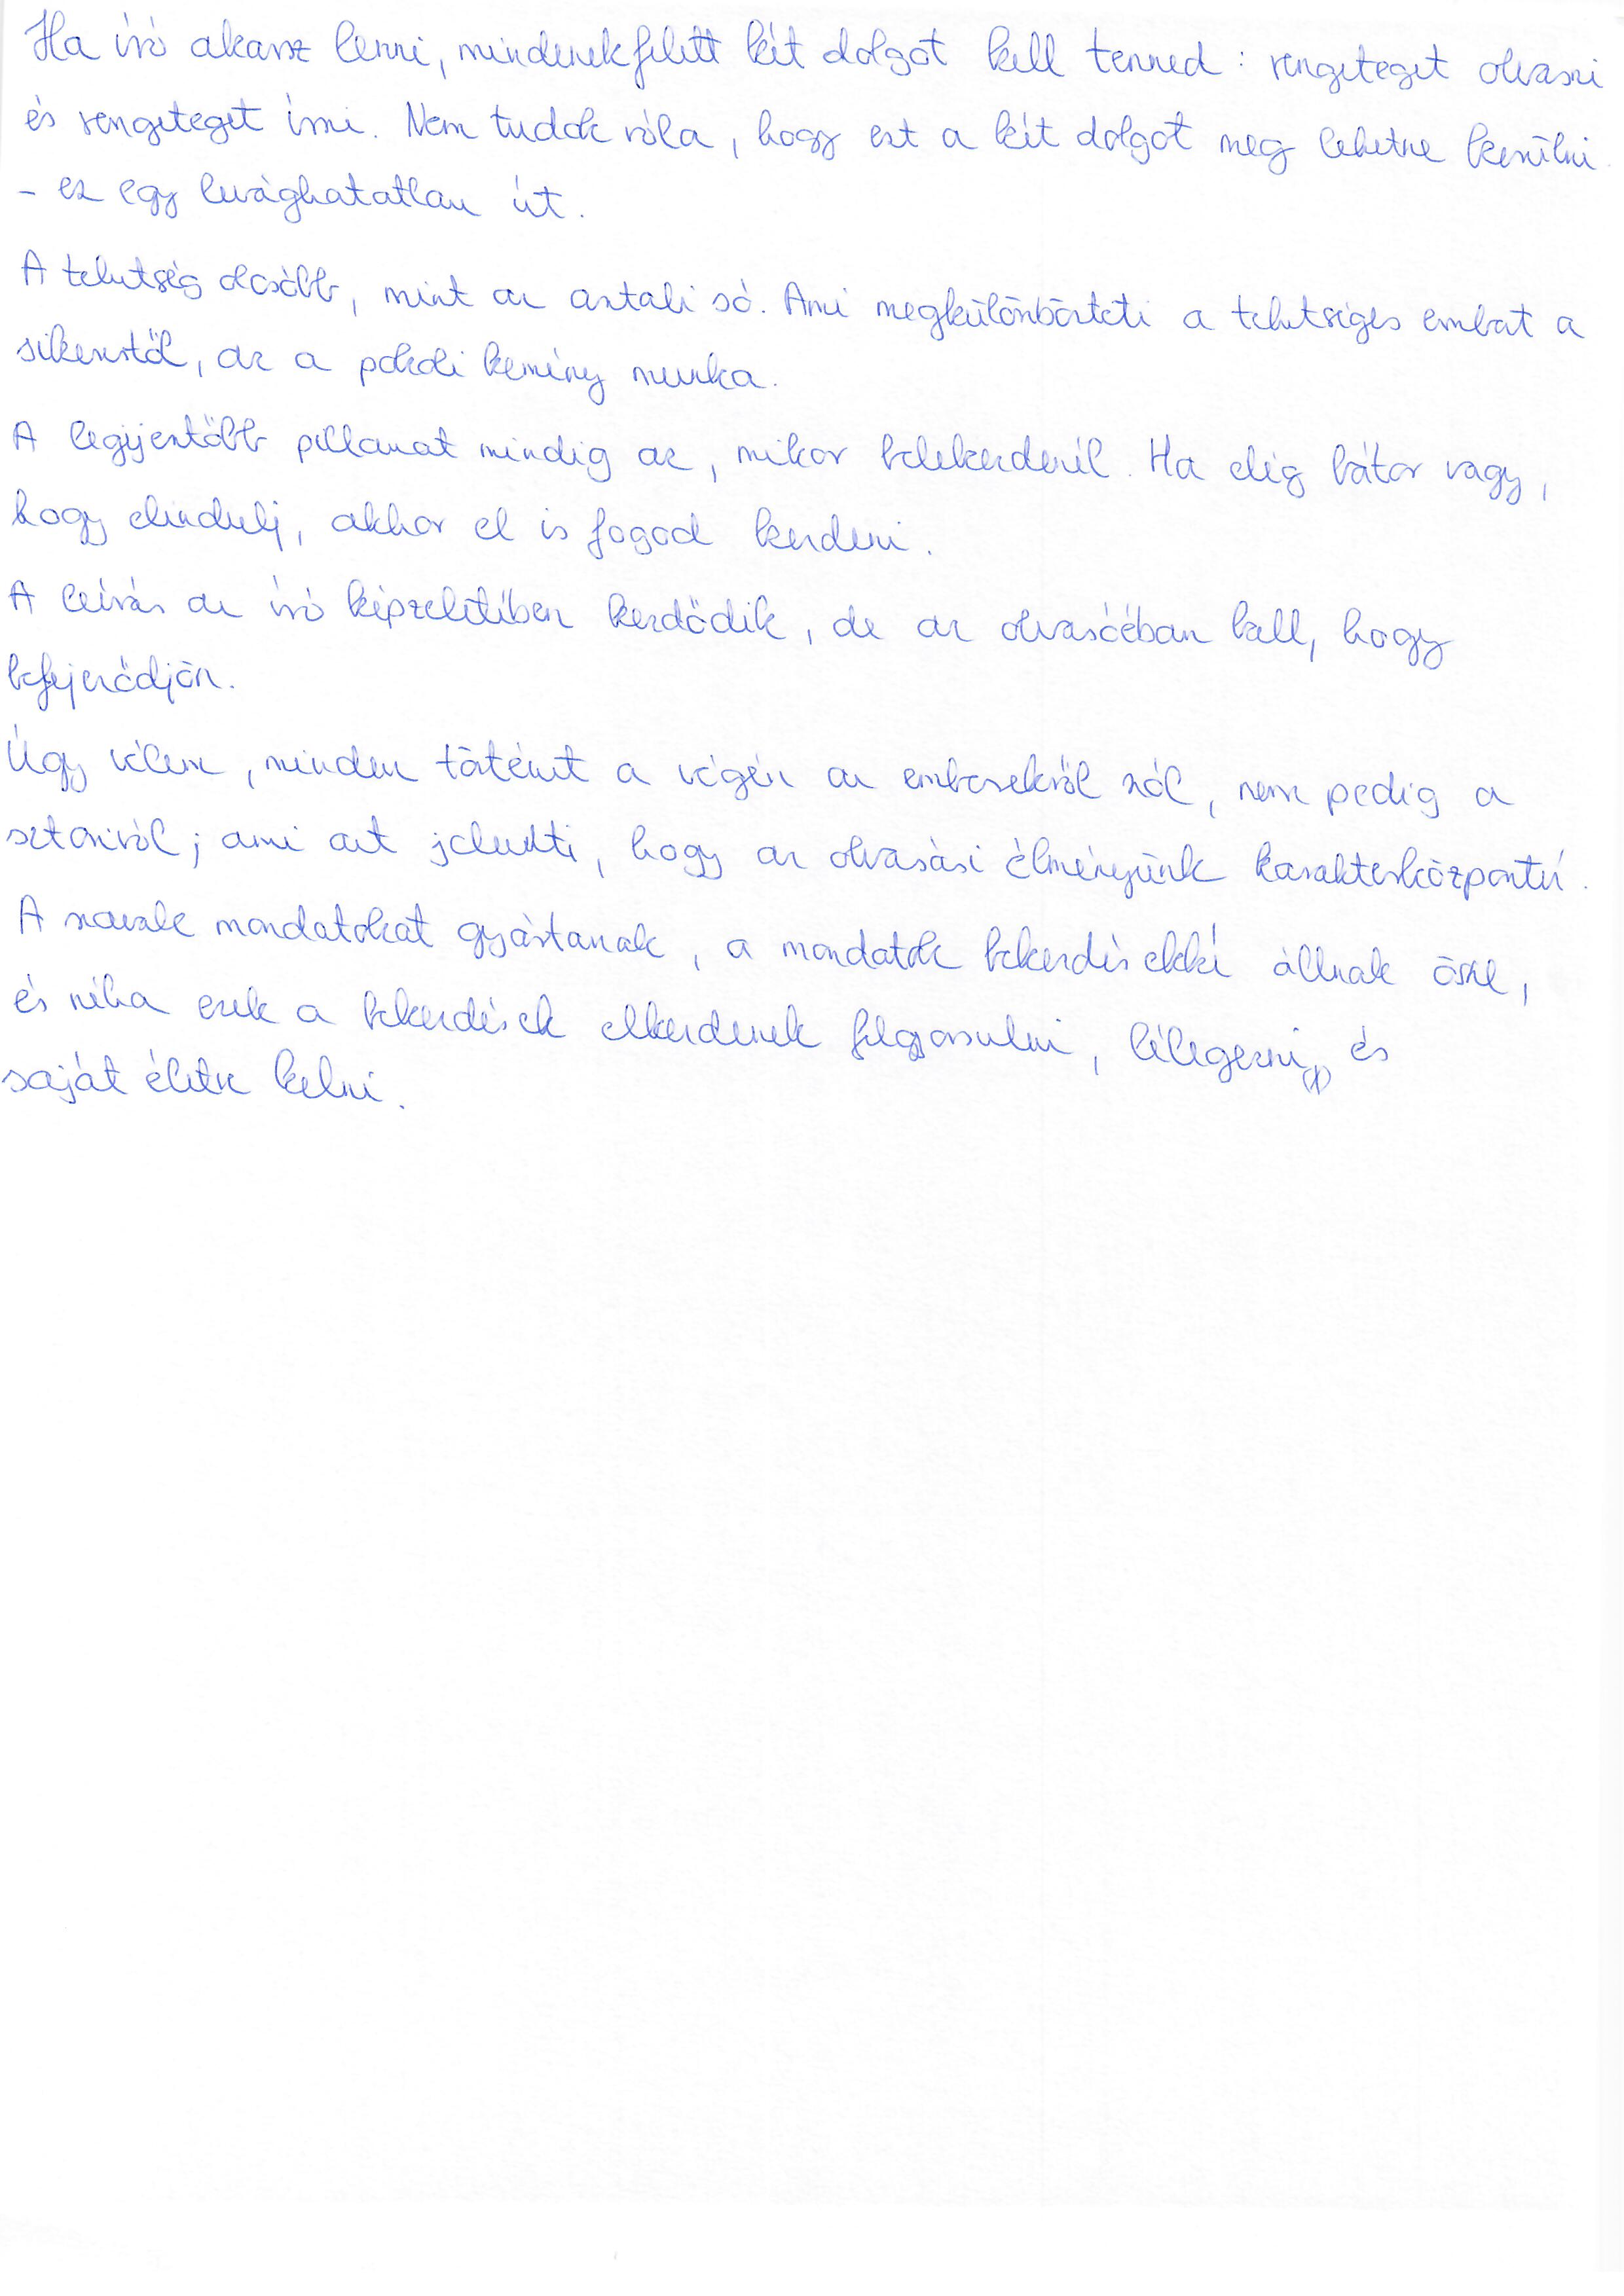 Ha író akarsz lenni, mindenekfelett két dolgot kell tenned: rengeteget olvasni
és rengeteget írni. Nem tudok róla, hogy ezt a két dolgot meg lehetne kerülni
- ez egy levághatatlan út.
A tehetség olcsóbb, mint az asztali só. Ami megkülönbözteti a tehetséges embert a
sikerestől, az a pokoli kemény munka.
A legijesztőbb pillanat mindig az, mikor belekezdenél. Ha elég bátor vagy,
hogy elindulj, akkor el is fogod kezdeni.
A leírás az író képzeletében kezdődik, de az olvasóéban kell, hogy
befejeződjön.
Úgy vélem, minden történet a végén az emberekről szól, nem pedig a
sztoriról; ami azt jelenti, hogy az olvasási élményünk karakterközpontú.
A szavak mondatokat gyártanak, a mondatok bekezdésekké állnak össze,
és néha ezek a bekezdések elkezdenek felgyorsulni, lélegezni, és
saját életre kelni.